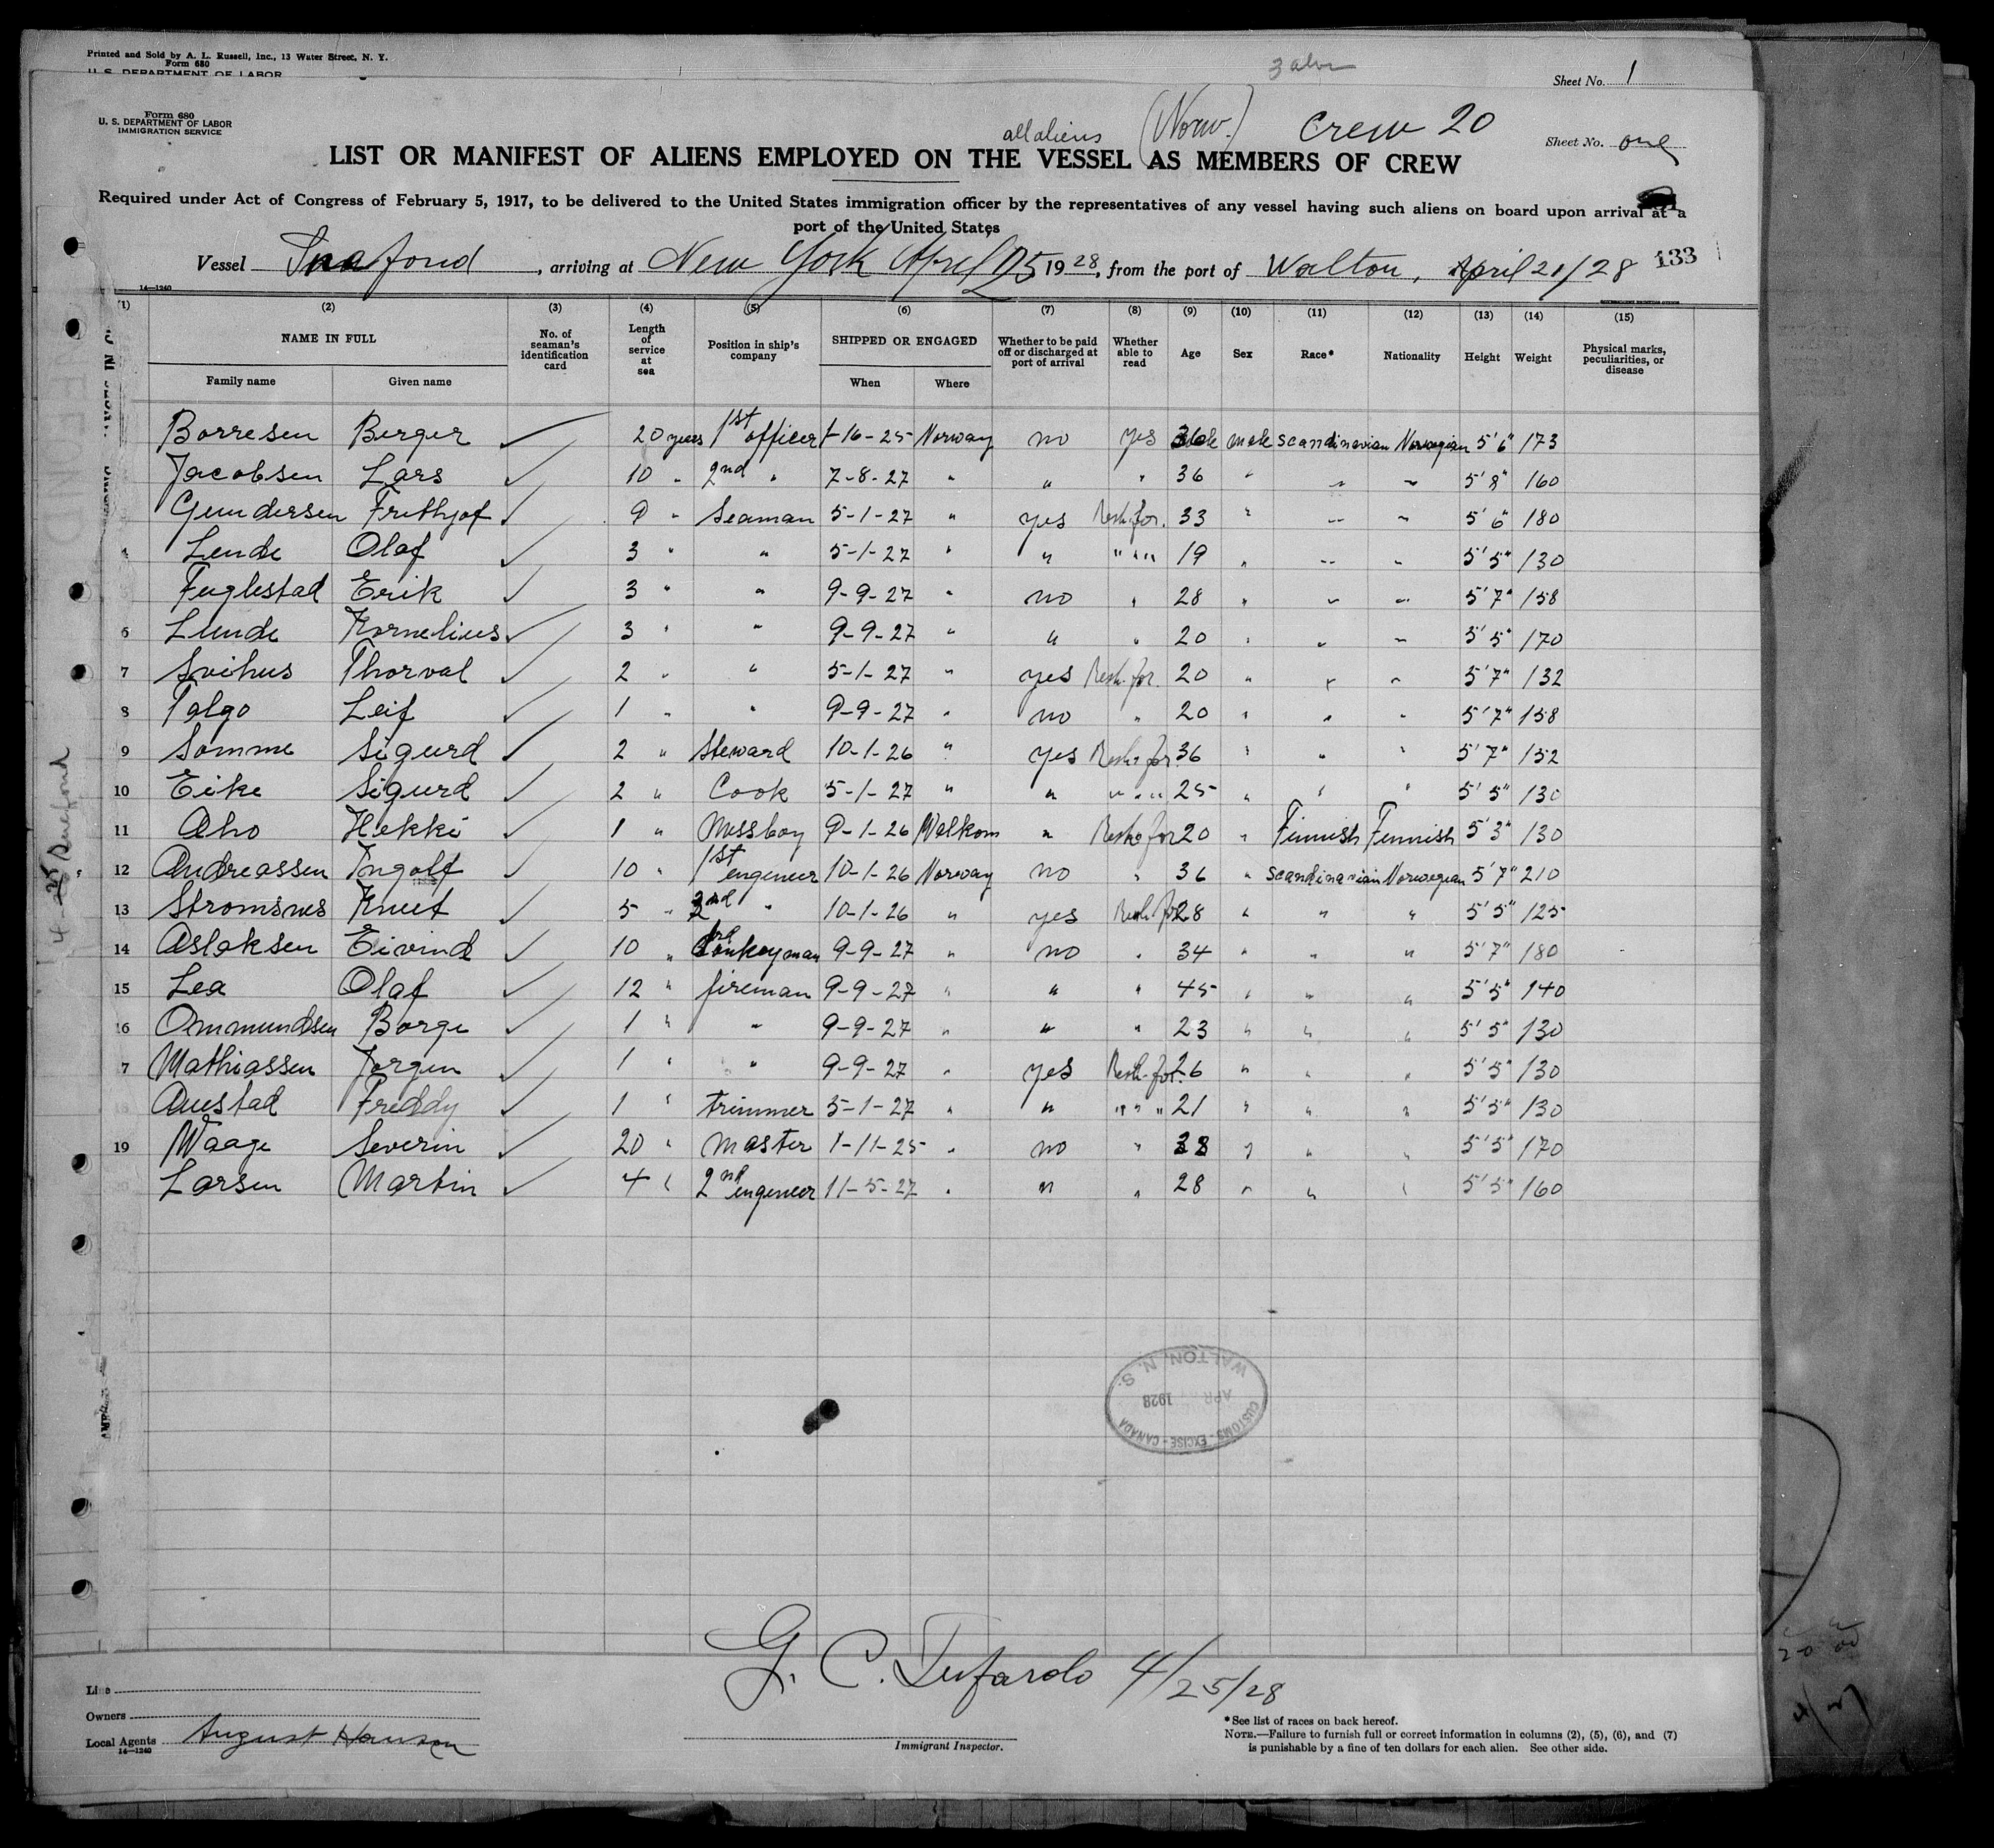 Printed and Sold by A. L. Russell, Inc., 13 Water Street, N. Y.
Form 680
U. S. DEPARTMENT OF LABOR
Sheet No. 1
Form 680
U. S. DEPARTMENT OF LABOR
IMMIGRATION SERVICE
all aliens (Norw.) Crew 20
Sheet No. one
LIST OR MANIFEST OF ALIENS EMPLOYED ON THE VESSEL AS MEMBERS OF CREW
Required under Act of Congress of February 5, 1917, to be delivered to the United States immigration officer by the representatives of any vessel having such aliens on board upon arrival at a
port of the United States
Vessel Snafond, arriving at New York April 25 1928, from the port of Walton, April 21/28 133
14—1240
(1) (2) (3) (4) (5) (6) (7) (8) (9) (10) (11) (12) (13) (14) (15)
NAME IN FULL No. of seaman's identification card Length of service at sea Position in ship's company SHIPPED OR ENGAGED Whether to be paid off or discharged at port of arrival Whether able to read Age Sex Race* Nationality Height Weight Physical marks, peculiarities, or disease
Family name Given name When Where
Borresen Berger 20 years 1st officer 1-16-25 Norway no yes 36 male Scandinavian Norwegian 5'6" 173
Jacobsen Lars 10 " 2nd " 7-8-27 " " " 36 " " " 5'8" 160
Gundersen Frithjof 9 " Seaman 5-1-27 " yes Resh. for. 33 " " " 5'6" 180
4 Lende Olaf 3 " " 5-1-27 " " " " 19 " " " 5'5" 130
Fuglestad Erik 3 " " 9-9-27 " no " 28 " " " 5'7" 158
6 Lunde Kornelius 3 " " 9-9-27 " " " 20 " " " 5'5" 170
7 Svihus Thorval 2 " " 5-1-27 " yes Resh. for. 20 " " " 5'7" 132
8 Talgo Leif 1 " " 9-9-27 " no " 20 " " " 5'7" 158
9 Somme Sigurd 2 " Steward 10-1-26 " yes Resh. for. 36 " " " 5'7" 152
10 Eike Sigurd 2 " Cook 5-1-27 " " " " 25 " " " 5'5" 130
11 Aho Hekki 1 " Messboy 9-1-26 Walkom " Resh. for 20 " Finnish Finnish 5'3" 130
12 Andreassen Ingolf 10 " 1st engineer 10-1-26 Norway no " 36 " Scandinavian Norwegian 5'7" 210
13 Stromsnes Knut 5 " 2nd " 10-1-26 " yes Resh. for. 28 " " " 5'5" 125
14 Aslaksen Eivind 10 " Donkeyman 9-9-27 " no " 34 " " " 5'7" 180
15 Lea Olaf 12 " fireman 9-9-27 " " " 45 " " " 5'5" 140
16 Ommundsen Borge 1 " " 9-9-27 " " " 23 " " " 5'5" 130
7 Mathiassen Jorgen 1 " " 9-9-27 " yes Resh. for. 26 " " " 5'5" 130
Austad Freddy 1 " trimmer 5-1-27 " " " " 21 " " " 5'5" 130
19 Waage Severin 20 " Master 1-11-25 " no " 38 " " " 5'5" 170
Larsen Martin 4 " 2nd engineer 11-5-27 " " " 28 " " " 5'5" 160
CUSTOMS - EXCISE - CANADA
APR 1928
WALTON, N. S.
G. C. Tufarolo 4/25/28
Line
Owners
Local Agents August Hansen
14—1240
Immigrant Inspector.
*See list of races on back hereof.
NOTE.—Failure to furnish full or correct information in columns (2), (5), (6), and (7)
is punishable by a fine of ten dollars for each alien. See other side.